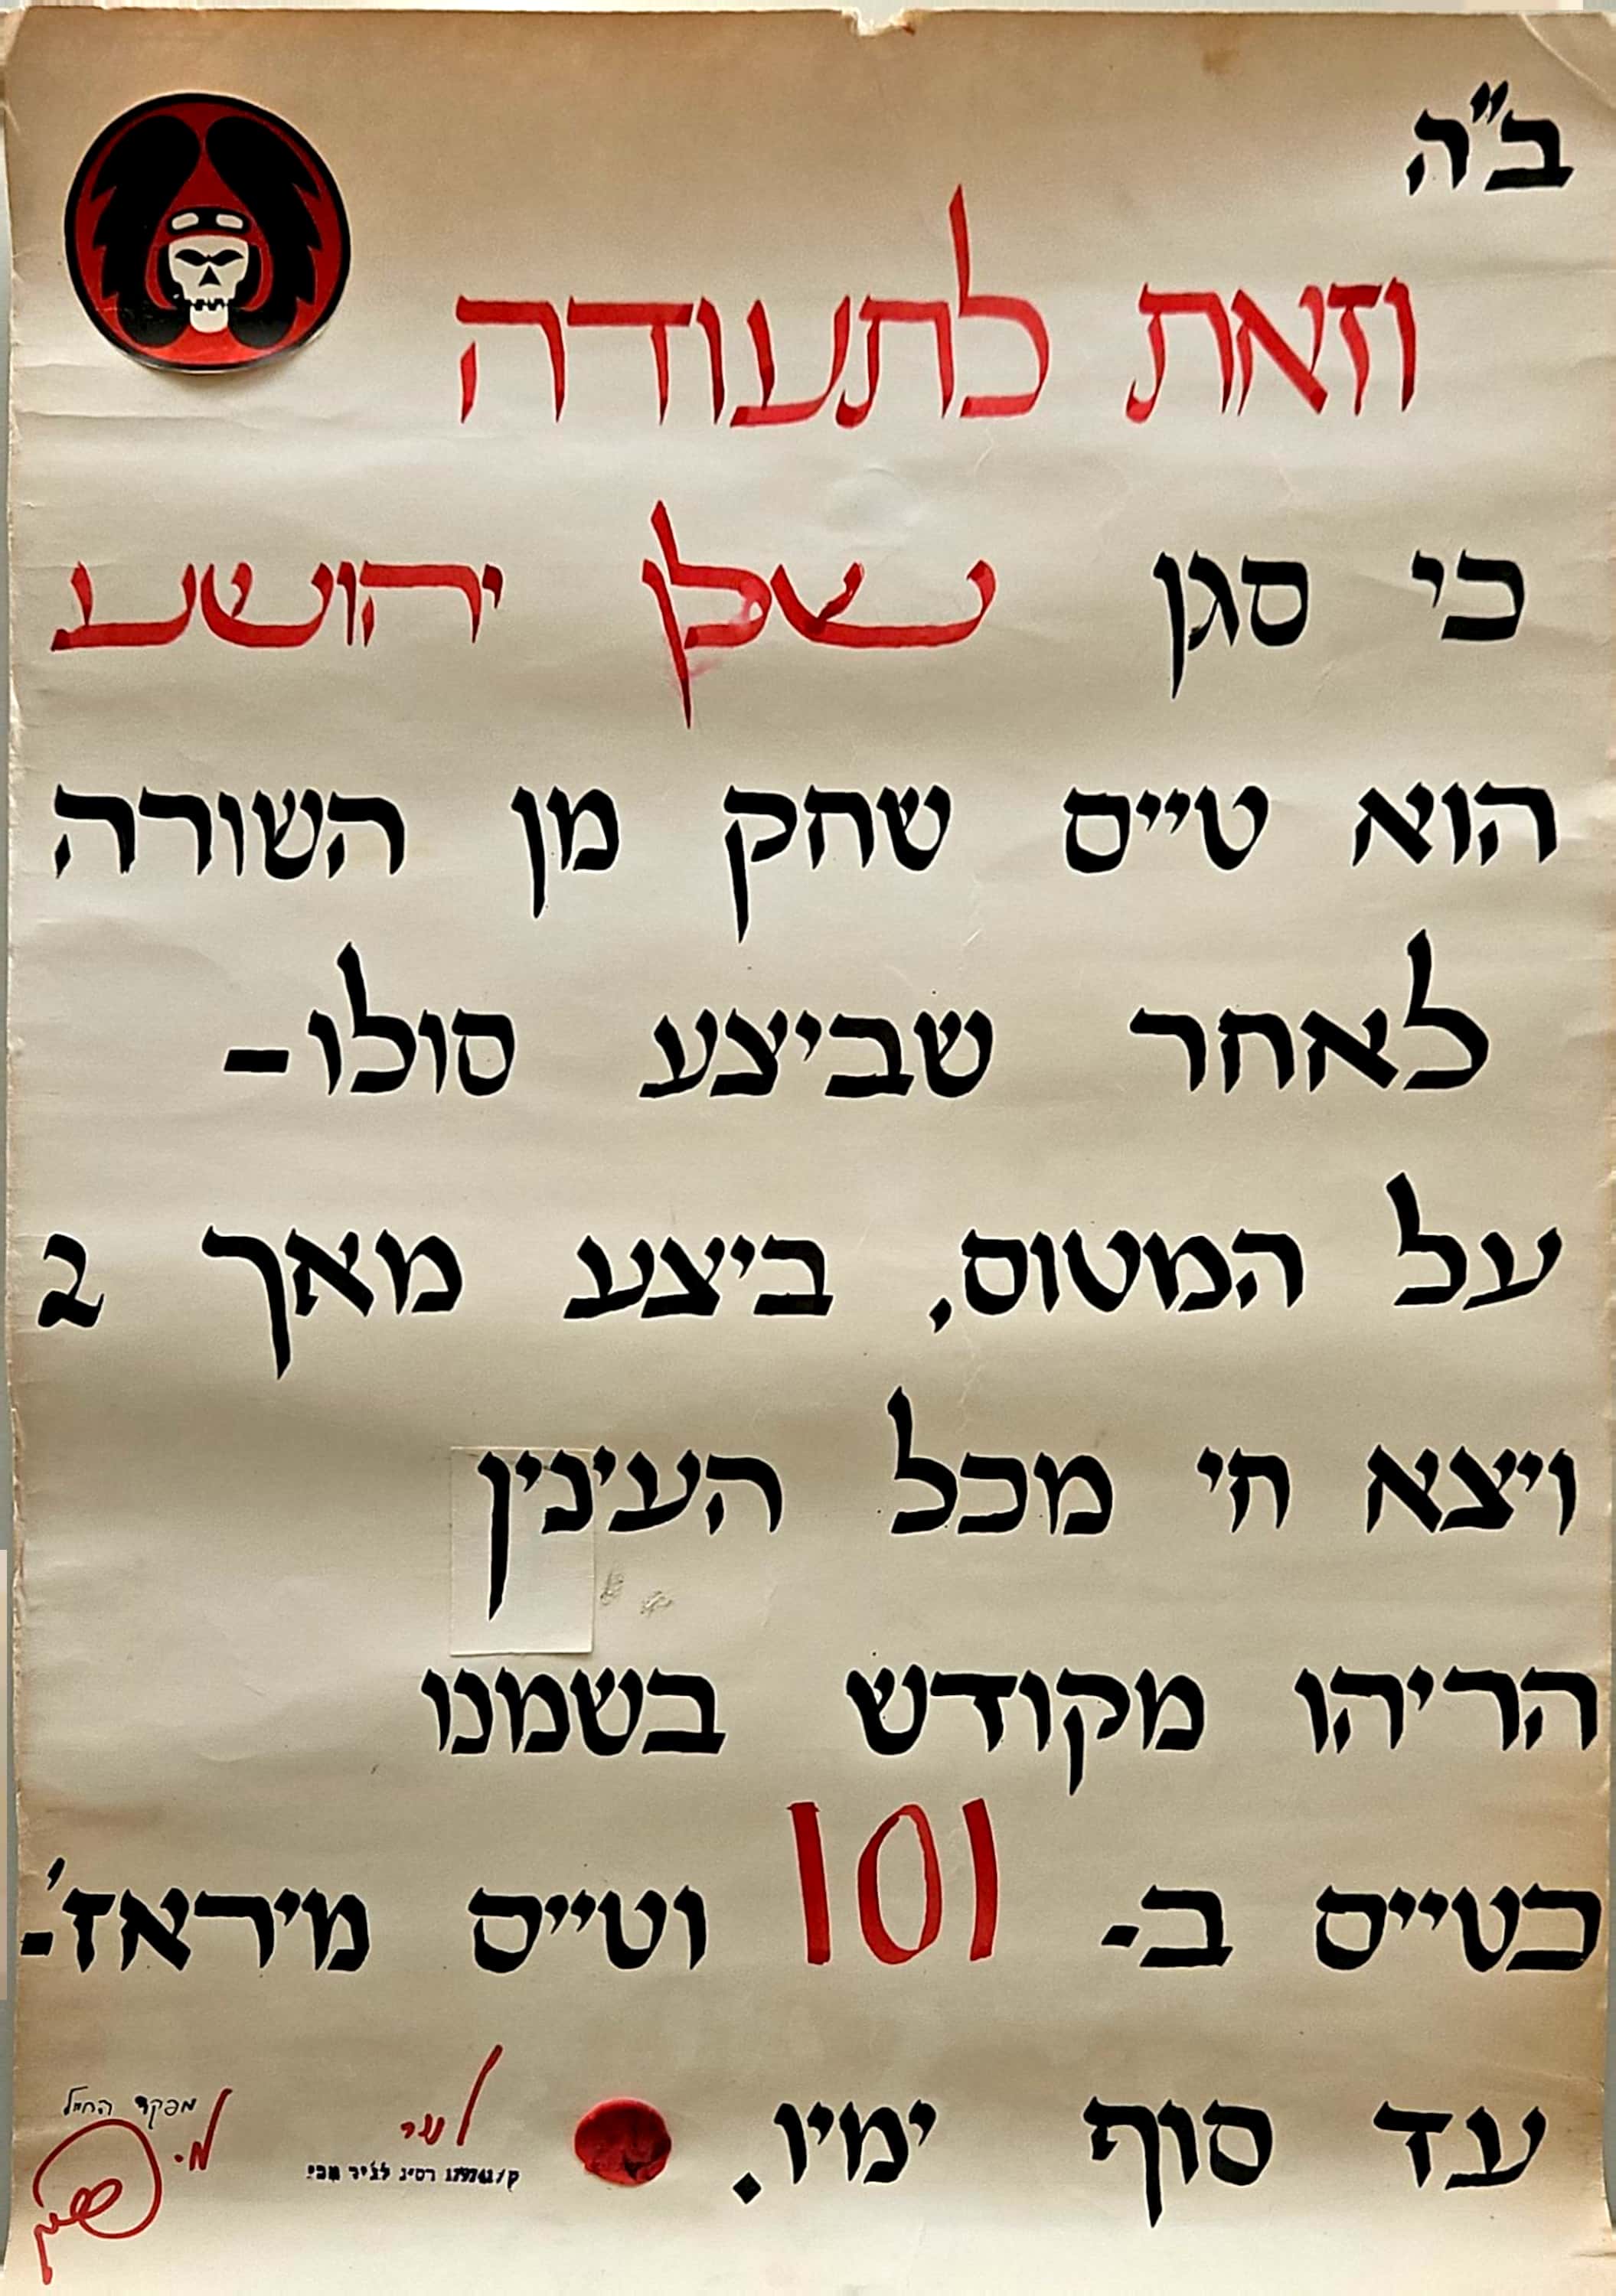 ב"ה
וזאת לתעודה
כי סגן שלן יהושע
הוא טייס שחק מן השורה
לאחר שביצע סולו-
על המטוס, ביצע מאך 2
ויצא חי מכל הענין
הריהו מקודש בשמנו
כטייס ב- 101 וטייס מיראז'-
עד סוף ימיו.
מפקד החיל